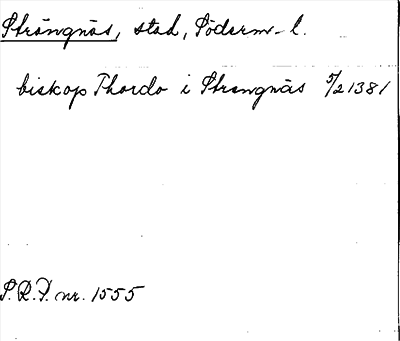 Strängnäs, stad, Söderm-l.
biskop Thordo i Strengnäs 5/2 1381
S.R.P. nr. 1555